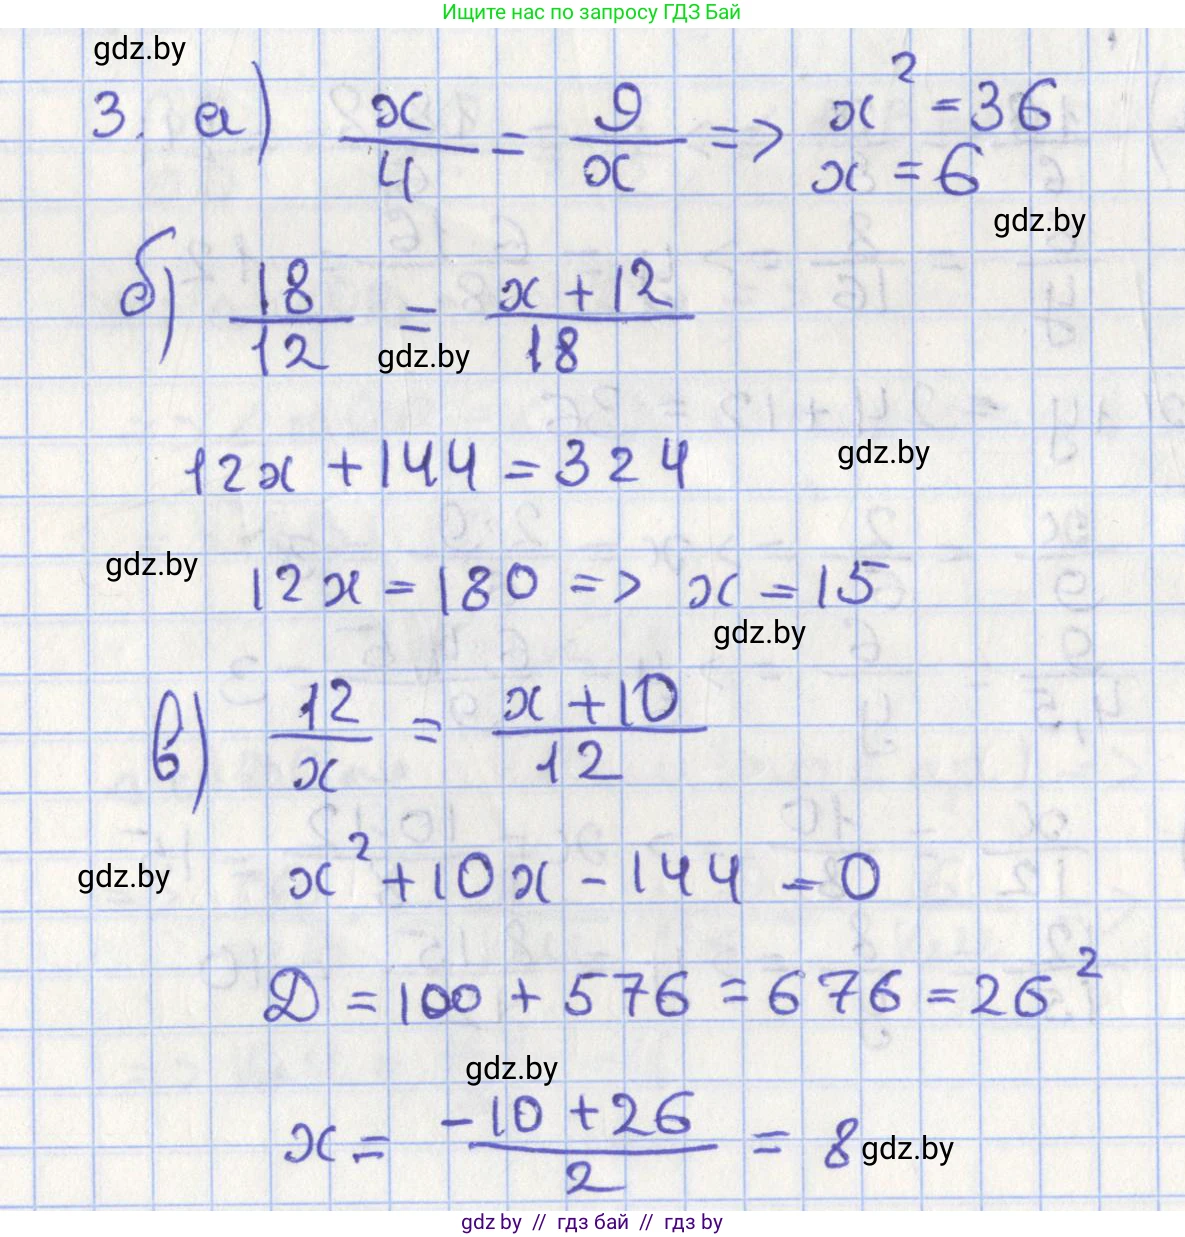 Ищите нас по запросу ГДЗ Бай
gdz.by
3. а) x/4 = 9/x => x² = 36
x = 6
gdz.by
б) 18/12 = (x + 12)/18
gdz.by
12x + 144 = 324
gdz.by
gdz.by
12x = 180 => x = 15
gdz.by
в) 12/x = (x + 10)/12
x² + 10x - 144 = 0
gdz.by
Д = 100 + 576 = 676 = 26²
gdz.by
x = (-10 + 26)/2 = 8
gdz.by
gdz by // гдз бай // гдз by